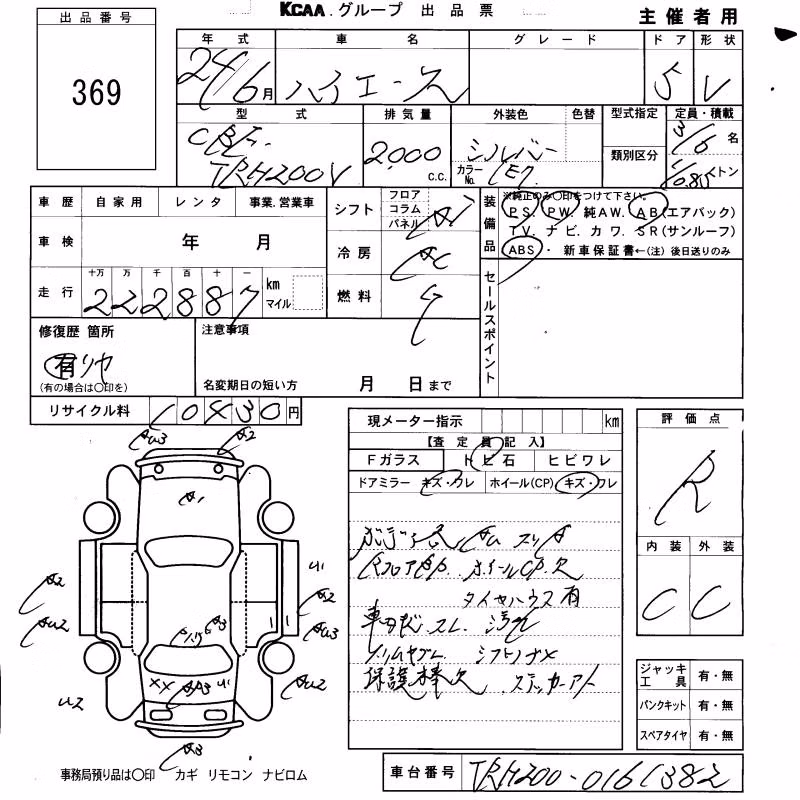 KCAA.グループ 出品票
主催者用
出品番号
369
年式 車名 グレード ドア 形状
24/6月 ハイエース 5 V
型式 排気量 外装色 色替 型式指定 定員・積載
CBF- 2,000 c.c. シルバー 類別区分 3/6名
TRH200V カラーNo. 1E7 トン
車歴 自家用 レンタ 事業.営業車
シフト フロア コラム パネル
装備品 ※純正のみ○印をつけて下さい。
PS. PW. 純AW. AB(エアバック)
TV. ナビ. カワ. SR(サンルーフ)
ABS・ 新車保証書←(注)後日送りのみ
車検 年 月
冷房 AC
走行 十万 万 千 百 十 一
222887 km マイル
燃料 G
セールスポイント
修復歴 箇所
有 リヤ
(有の場合は○印を)
注意事項
名変期日の短い方 月 日まで
リサイクル料 10430円
現メーター指示 km
【査定員記入】
Fガラス トビ石 ヒビワレ
ドアミラー キズ・ワレ ホイール(CP) キズ・ワレ
タイヤハウス有
保護棒欠 ステッカーアト
評価点
R
内装 外装
C C
ジャッキ工具 有・無
パンクキット 有・無
スペアタイヤ 有・無
AU3 A2
A1
A2 U1
A2
AU2 AU3
U2 XX U1 AU2
A3
事務局預り品は○印 カギ リモコン ナビロム
車台番号 TRH200-0161382